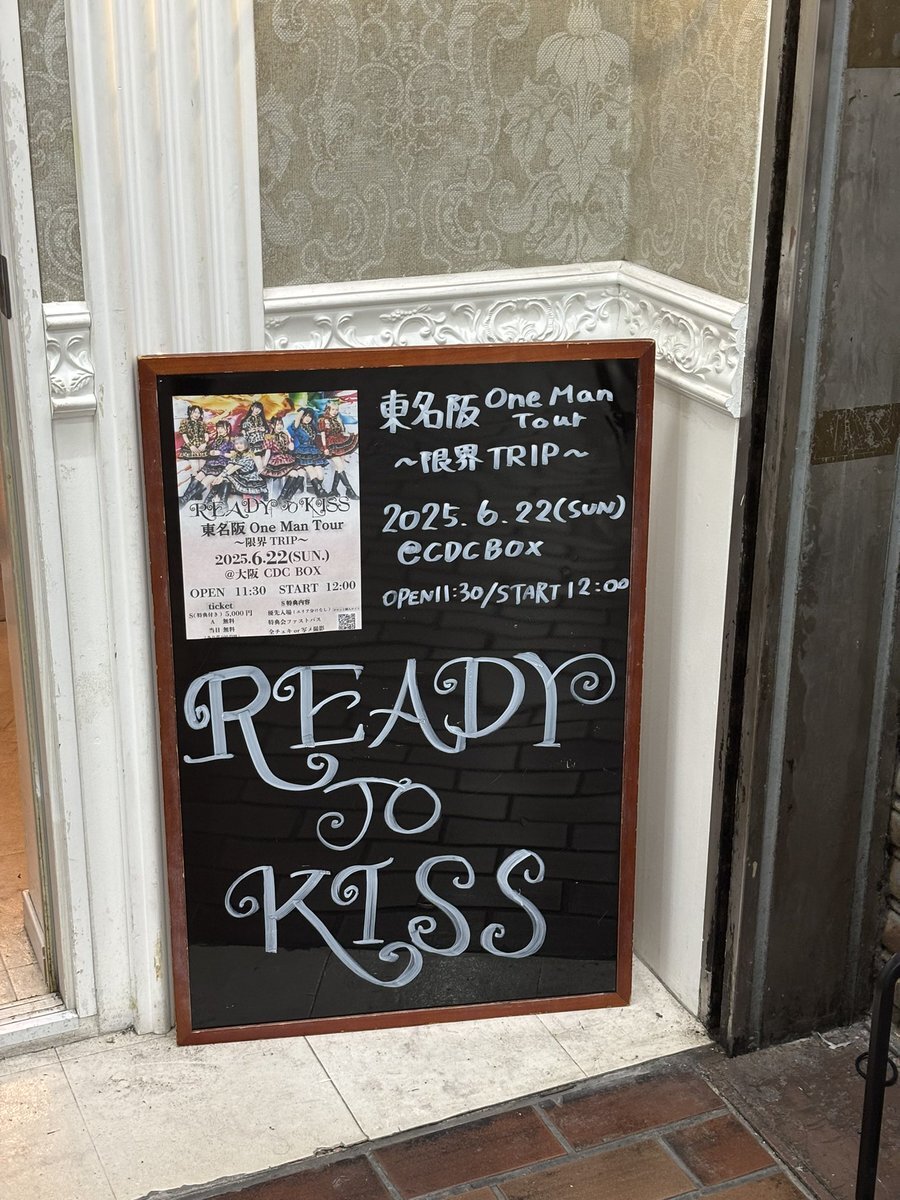 READY to KISS
東名阪 One Man Tour
～限界TRIP～
2025.6.22(SUN.)
@大阪 CDC BOX
OPEN 11:30 START 12:00
ticket
S(特典付き) 5,000円
A 無料
当日 無料
S特典内容
優先入場
特典会ファストパス
全チェキor写メ撮影
東名阪 One Man
Tour
～限界TRIP～
2025.6.22(SUN)
@CDCBOX
OPEN11:30/START12:00
READY
TO
KISS